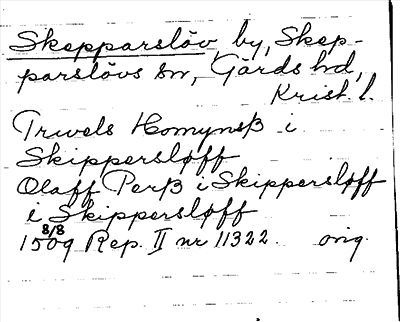 Skepparslöv, by, Skep-
parslövs sn, Gärds hd,
Krist l.
Truvels Homynsß i
Skippersløff
Olaff Perß i Skippersløff
i Skippersløff
8/8
1509 Rep. II nr 11322 orig.